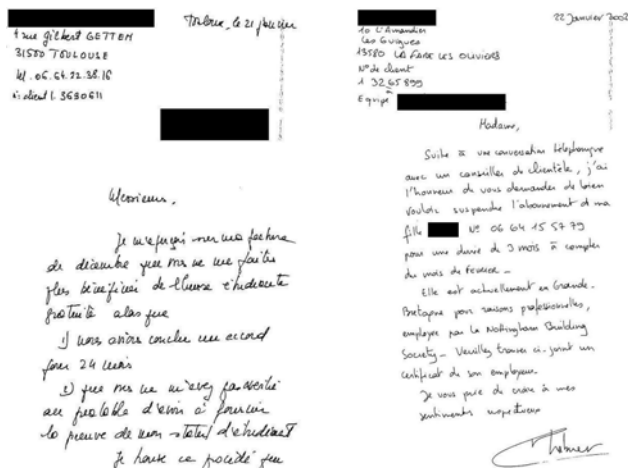 Toulouse, le 21 janvier
4 rue Gilbert GETTEN
31500 TOULOUSE
tel. 06.64.22.38.16
n° client 1.3630611
Monsieur,
Je m'aperçois sur ma facture
de décembre que vous ne me faites
plus bénéficier de l'heure étudiante
gratuite alors que
1) nous avions conclu un accord
pour 24 mois
2) que vous ne m'avez pas avertie
au préalable d'avoir à fournir
la preuve de mon statut d'étudiant
Je trouve ce procédé peu
22 Janvier 2002
10 L'Amandier
Les Guigues
13580 LA FARE LES OLIVIERS
N° de client
1 3265899
à
Equipe
Madame,
Suite à une conversation téléphonique
avec un conseiller de clientèle, j'ai
l'honneur de vous demander de bien
vouloir suspendre l'abonnement de ma
fille N° 06 64 15 57 79
pour une durée de 3 mois à compter
du mois de Février -
Elle est actuellement en Grande-
Bretagne pour raisons professionnelles,
employée par la Nottingham Building
Society - Veuillez trouver ci-joint un
certificat de son employeur.
Je vous prie de croire à mes
sentiments respectueux